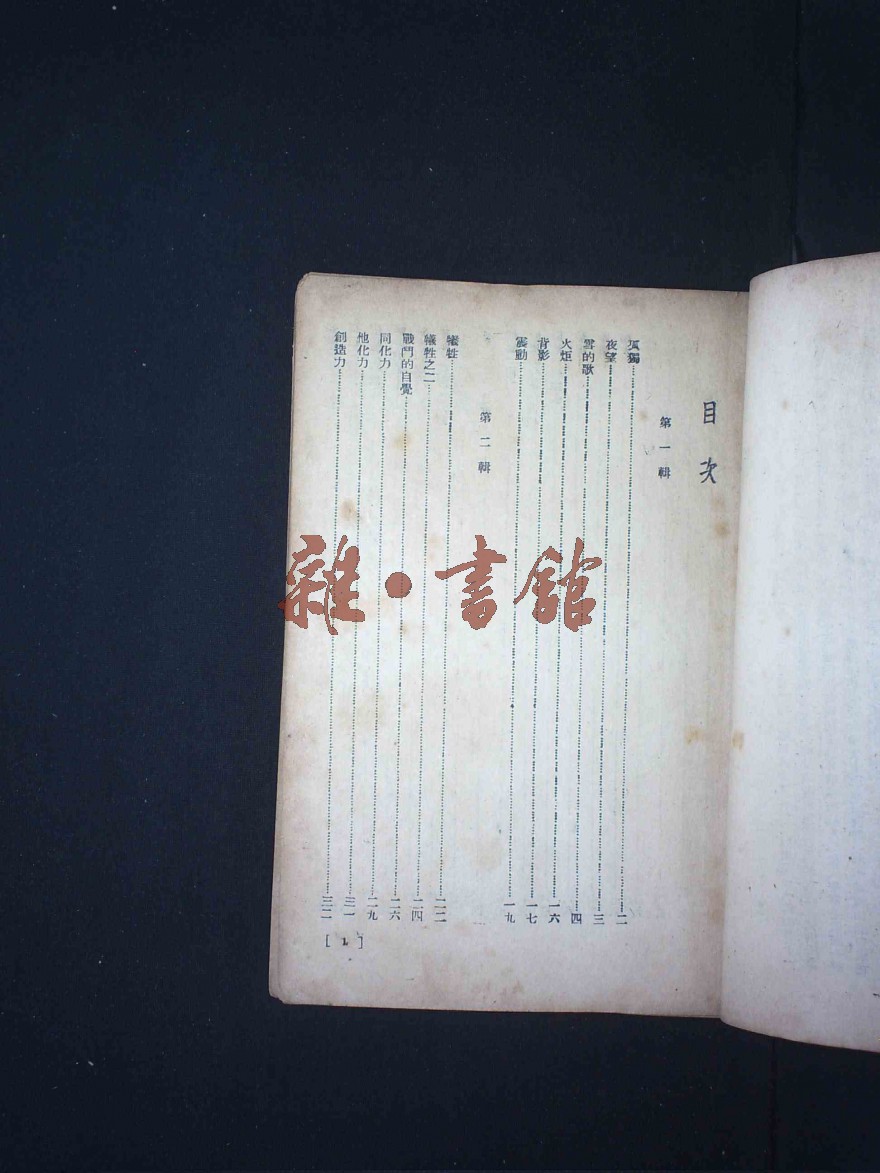 目次
第一輯
孤獨……二
夜望……三
雪的歌……四
火炬……一六
背影……一七
震動……一九
第二輯
犧牲……二二
犧牲之二……二四
戰鬥的自覺……二六
同化力……二九
他化力……三一
創造力……三二
[1]
雜·書館